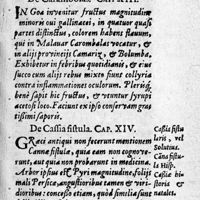 IN Goa invenitur fructus magnitudine
minoris ovi gallinacei, in quatuor quasi
partes distinctus, colorem habens flavum,
qui in Malavar Carombalas vocatur, &
in alijs provincijs Camariz, & Bolumba,
Exhibetur in febribus quotidianis, & eius
succo cum alijs rebus mixto fiunt collyria
contra inflammationes oculorum. Preterea
bene sapit hic fructus, & ventur fyropi
acetosi loco. Faciunt ex ipso conservam gra-
tissimi saporis.
De Cassia fistula. CAP. XIV.
GRæci antiqui non fecerunt mentionem
Canna fistula, quia eam non cognove-
runt, aut quia non probarunt in medicina.
Arbor ipsius est Pyri magnitudine, folijs
mali Persicæ, angustioribus tamen & viri-
dioribus: concesso etiam, quod similia sunt
Cassia fistu
laris, vel
Solutiva.
Cãna fistu
la Hisp.
Cassiæ hi
storia &
natales.